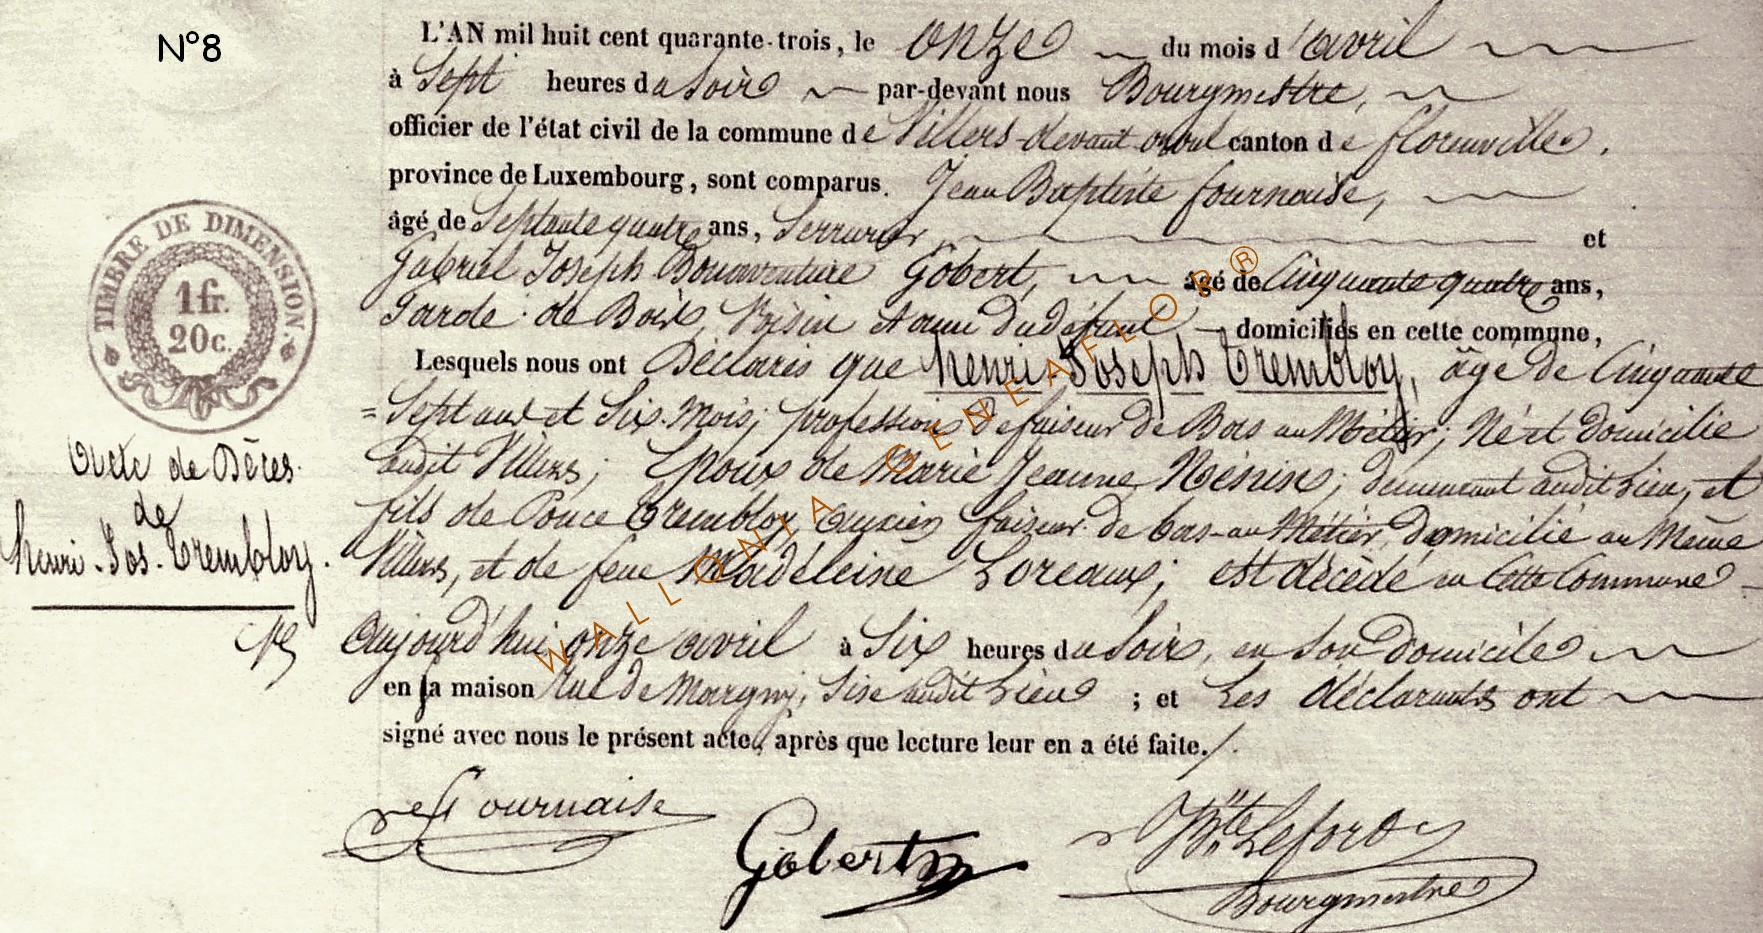 N°8
L'AN mil huit cent quarante-trois, le onze du mois d'avril
à Sept heures du Soir par-devant nous Bourgmestre,
officier de l'état civil de la commune de Villers-devant orval canton de florenville.
province de Luxembourg, sont comparus. Jean Baptiste fournaise,
âgé de Septante quatre ans, Serrurier, et
Gabriel Joseph Bonaventure Gobert, âgé de Cinquante quatre ans,
Garde de Bois, Voisin et ami du défunt domiciliés en cette commune,
Lesquels nous ont Déclarés que henri-Joseph Trembloy, âgé de Cinquante
=Sept ans et Six mois; profession de faiseur de Bas au Métier; Né et Domicilié
audit Villers; Epoux de Marie Jeanne Nénin; demeurant audit Lieu, et
fils de Ponce Trembloy, Ancien faiseur de bas-au Métier, domicilié au Même
Villers, et de feue Madeleine Loreaux; est décédé en Cette Commune
Aujourd'hui onze avril à Six heures du Soir, en Son Domicile
en sa maison Rue de Margny, Sise audit Lieu ; et Les déclarants ont
signé avec nous le présent acte, après que lecture leur en a été faite./.
TIMBRE DE DIMENSION.
1 fr.
20 c.
Acte de Décès
de
henri-Jos-Trembloy.
Fournaise
Gobert
Bte Lefort
Bourgmestre
WALLONIA GENEAFLOR ®